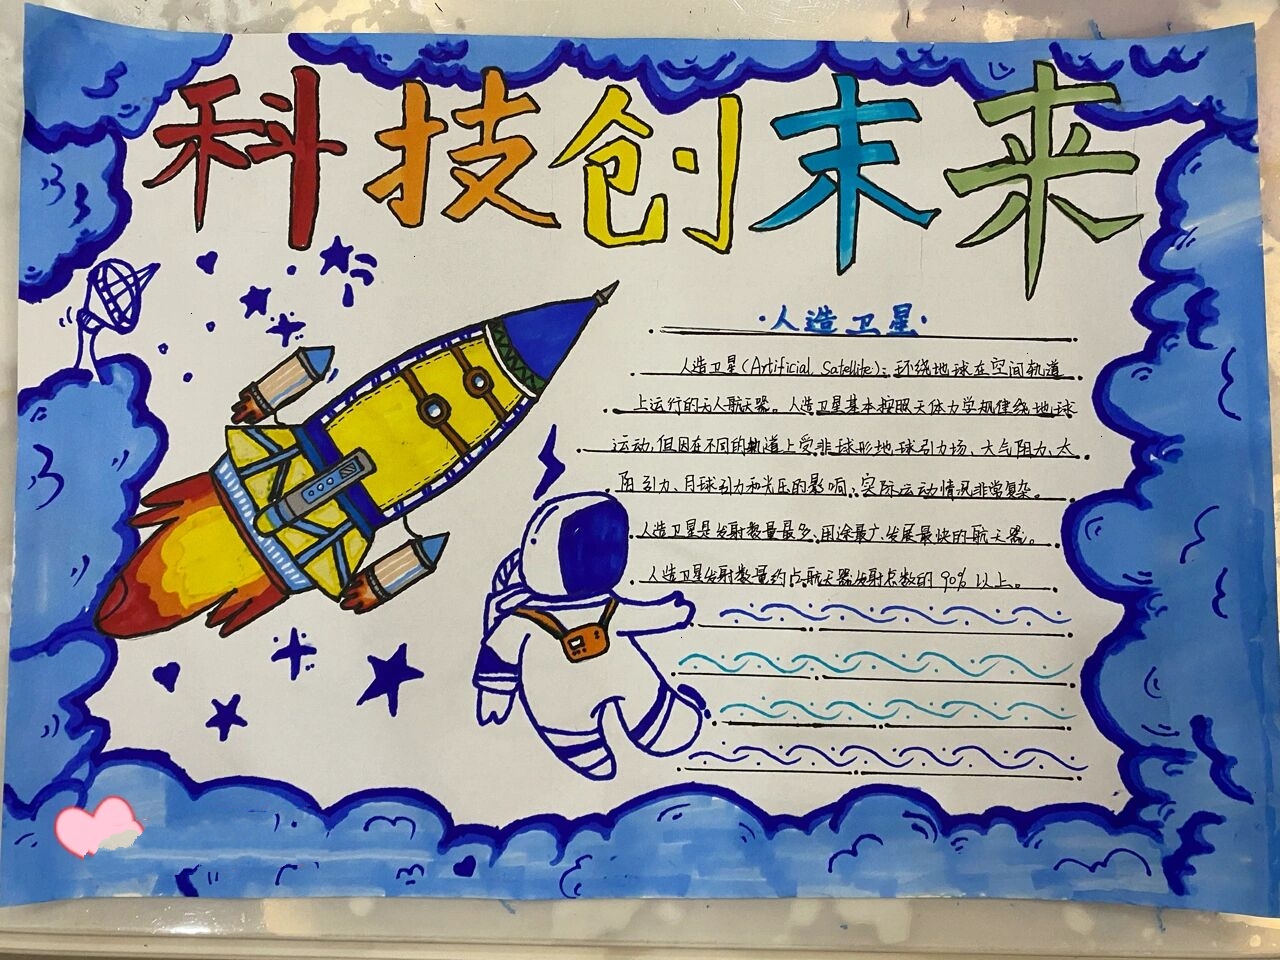 科技创末来
·人造卫星·
人造卫星(Artificial Satellite):环绕地球在空间轨道
上运行的无人航天器。人造卫星基本按照天体力学规律绕地球
运动,但因在不同的轨道上受非球形地球引力场、大气阻力、太
阳引力、月球引力和光压的影响,实际运动情况非常复杂。
人造卫星是发射数量最多、用途最广、发展最快的航天器。
人造卫星发射数量约占航天器发射总数的90%以上。